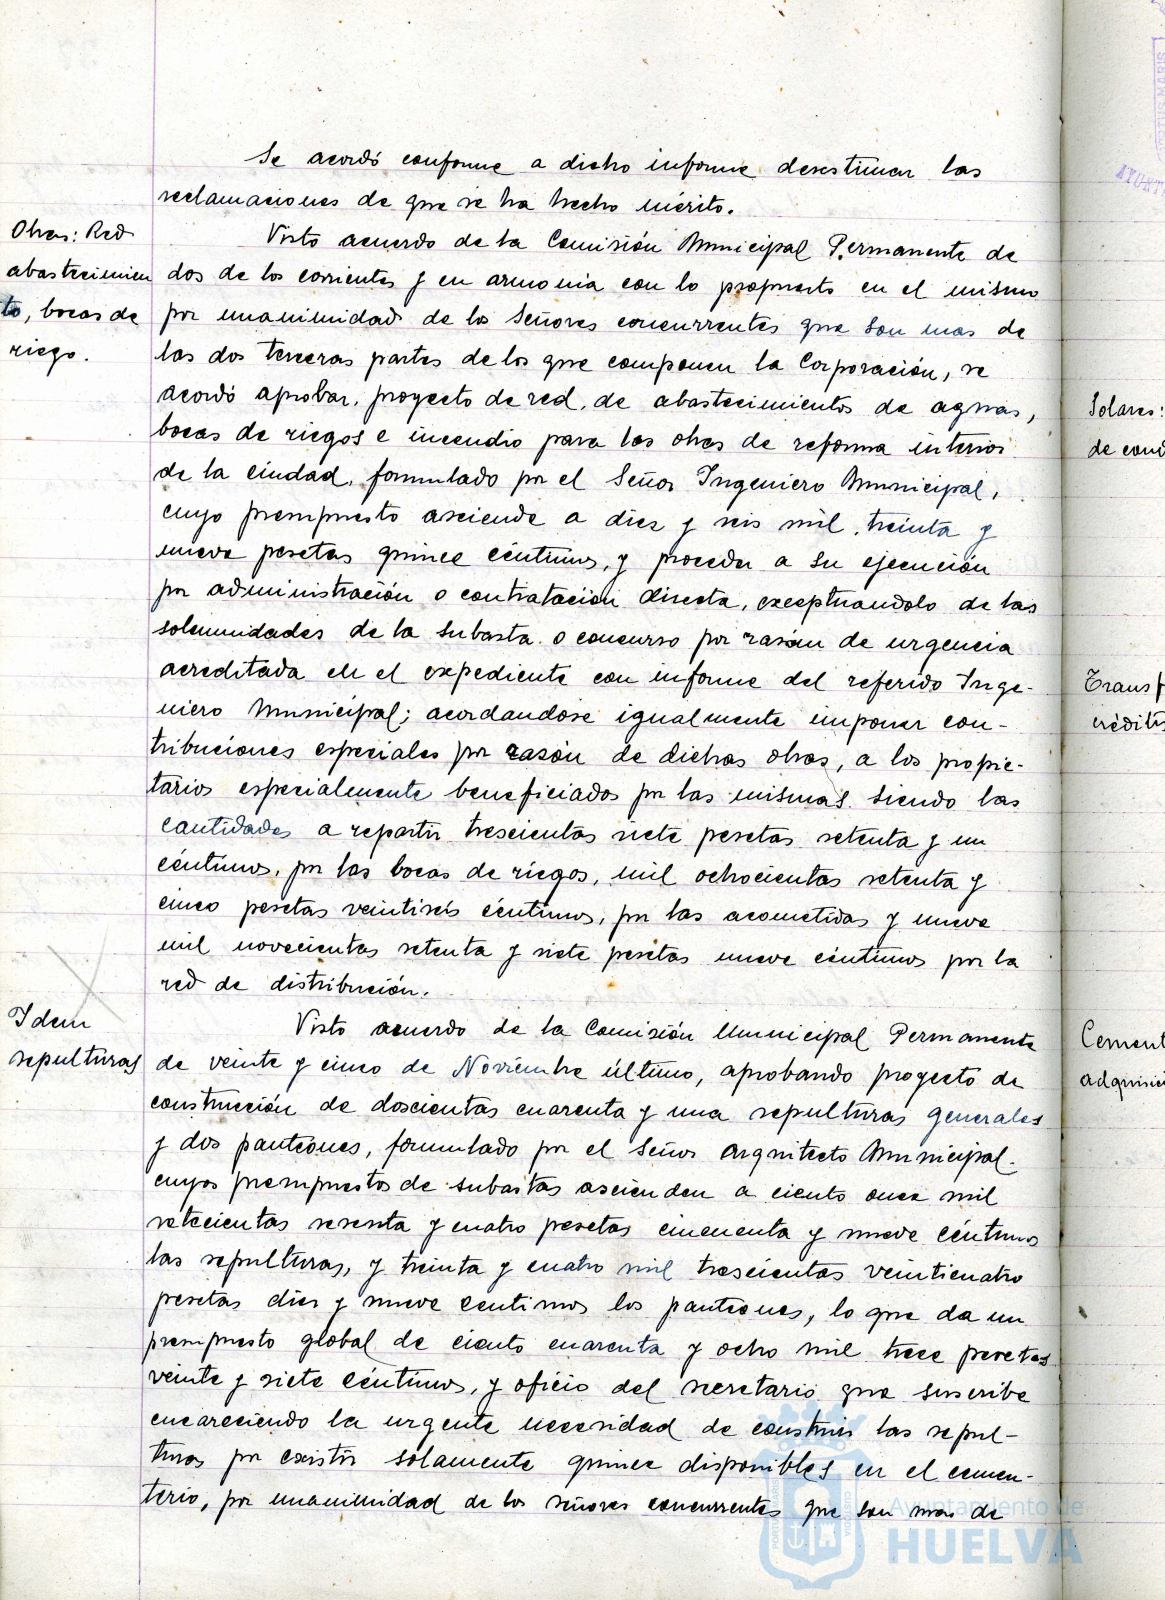 Se acordó conforme a dicho informe desestimar las
reclamaciones de que se ha hecho mérito.
Obras: Red
abastecimien
to, bocas de
riego.
Visto acuerdo de la Comisión Municipal Permanente de
dos de los corrientes y en armonia con lo propuesto en el mismo
por unanimidad de los Señores concurrentes que son mas de
las dos terceras partes de los que componen la Corporación, se
acordó aprobar, proyecto de red, de abastecimientos de aguas,
bocas de riegos e incendio para las obras de reforma interior
de la ciudad, formulado por el Señor Ingeniero Municipal,
cuyo presupuesto asciende a diez y seis mil, treinta y
nueve pesetas quince céntimos, y proceder a su ejecución
por administración o contratación directa, exceptuandolo de las
solemnidades de la subasta o concurso por razón de urgencia
acreditada en el expediente con informe del referido Inge-
niero Municipal; acordandose igualmente imponer con-
tribuciones especiales por razón de dichas obras, a los propie-
tarios especialmente beneficiados por las mismas siendo las
cantidades a repartir trescientas siete pesetas setenta y un
céntimos, por las bocas de riegos, mil ochocientas setenta y
cinco pesetas veintiseis céntimos, por las acometidas y nueve
mil novecientas setenta y siete pesetas nueve céntimos por la
red de distribución.
Idem
sepulturas
Visto acuerdo de la Comisión Municipal Permanente
de veinte y cinco de Noviembre último, aprobando proyecto de
construcción de doscientas cuarenta y una sepulturas generales
y dos panteones, formulado por el Señor Arquitecto Municipal.
cuyos presupuestos de subastas ascienden a ciento once mil
setecientas sesenta y cuatro pesetas cincuenta y nueve céntimos
las sepulturas, y treinta y cuatro mil trescientas veinticuatro
pesetas diez y nueve centimos los panteones, lo que da un
presupuesto global de ciento cuarenta y ocho mil trece pesetas
veinte y siete céntimos, y oficio del secretario que suscribe
encareciendo la urgente necesidad de construir las sepul-
turas por existir solamente quince disponibles en el cemen-
terio, por unanimidad de los señores concurrentes que son mas de
Solares:
de
Transf
crédito
Cement
adquisici
Ayuntamiento de
HUELVA